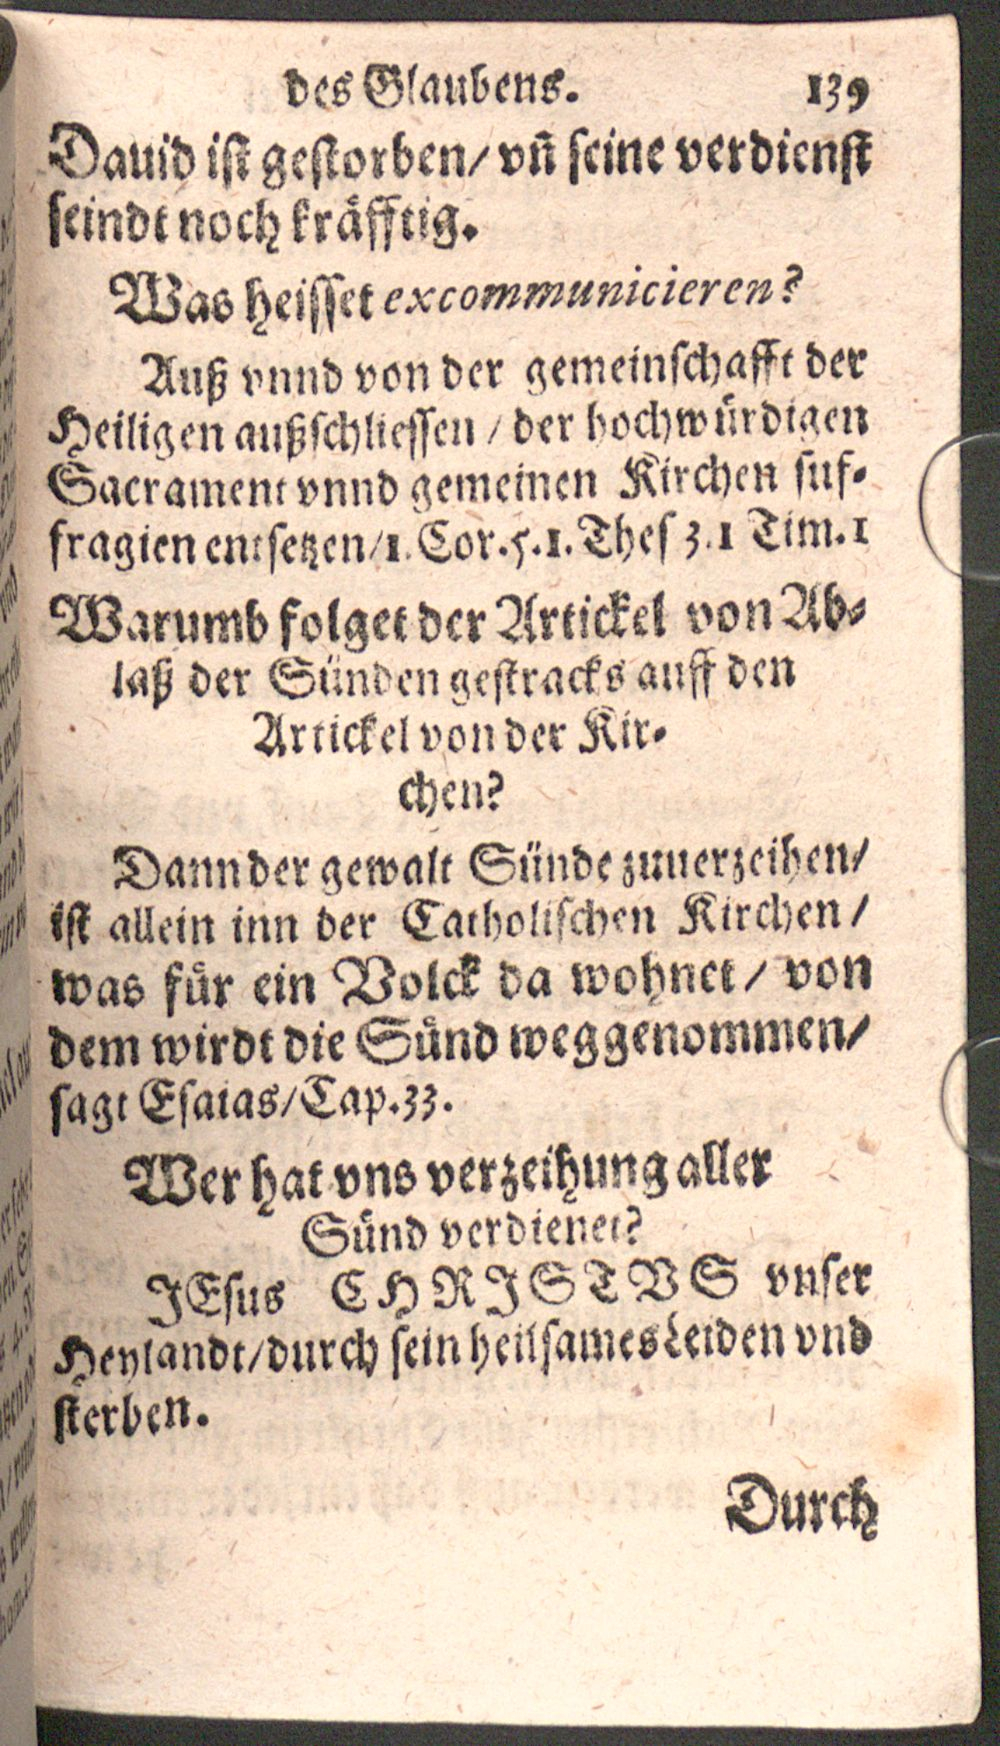 des Glaubens. 139
Dauid ist gestorben/ vñ seine verdienst
seindt noch kräfftig.
Was heisset excommunicieren?
Auß vnnd von der gemeinschafft der
Heiligen außschliessen / der hochwürdigen
Sacrament vnnd gemeinen Kirchen suf-
fragien entsetzen/1. Cor. 5. 1. Thes 3. 1 Tim. 1
Warumb folget der Artickel von Ab-
laß der Sünden gestracks auff den
Artickel von der Kir-
chen?
Dann der gewalt Sünde zuuerzeihen/
ist allein inn der Catholischen Kirchen /
was für ein Volck da wohnet / von
dem wirdt die Sünd weggenommen/
sagt Esaias/Cap. 33.
Wer hat vns verzeihung aller
Sünd verdienet?
JEsus CHRJSTVS vnser
Heylandt/durch sein heilsames Leiden vnd
sterben.
Durch